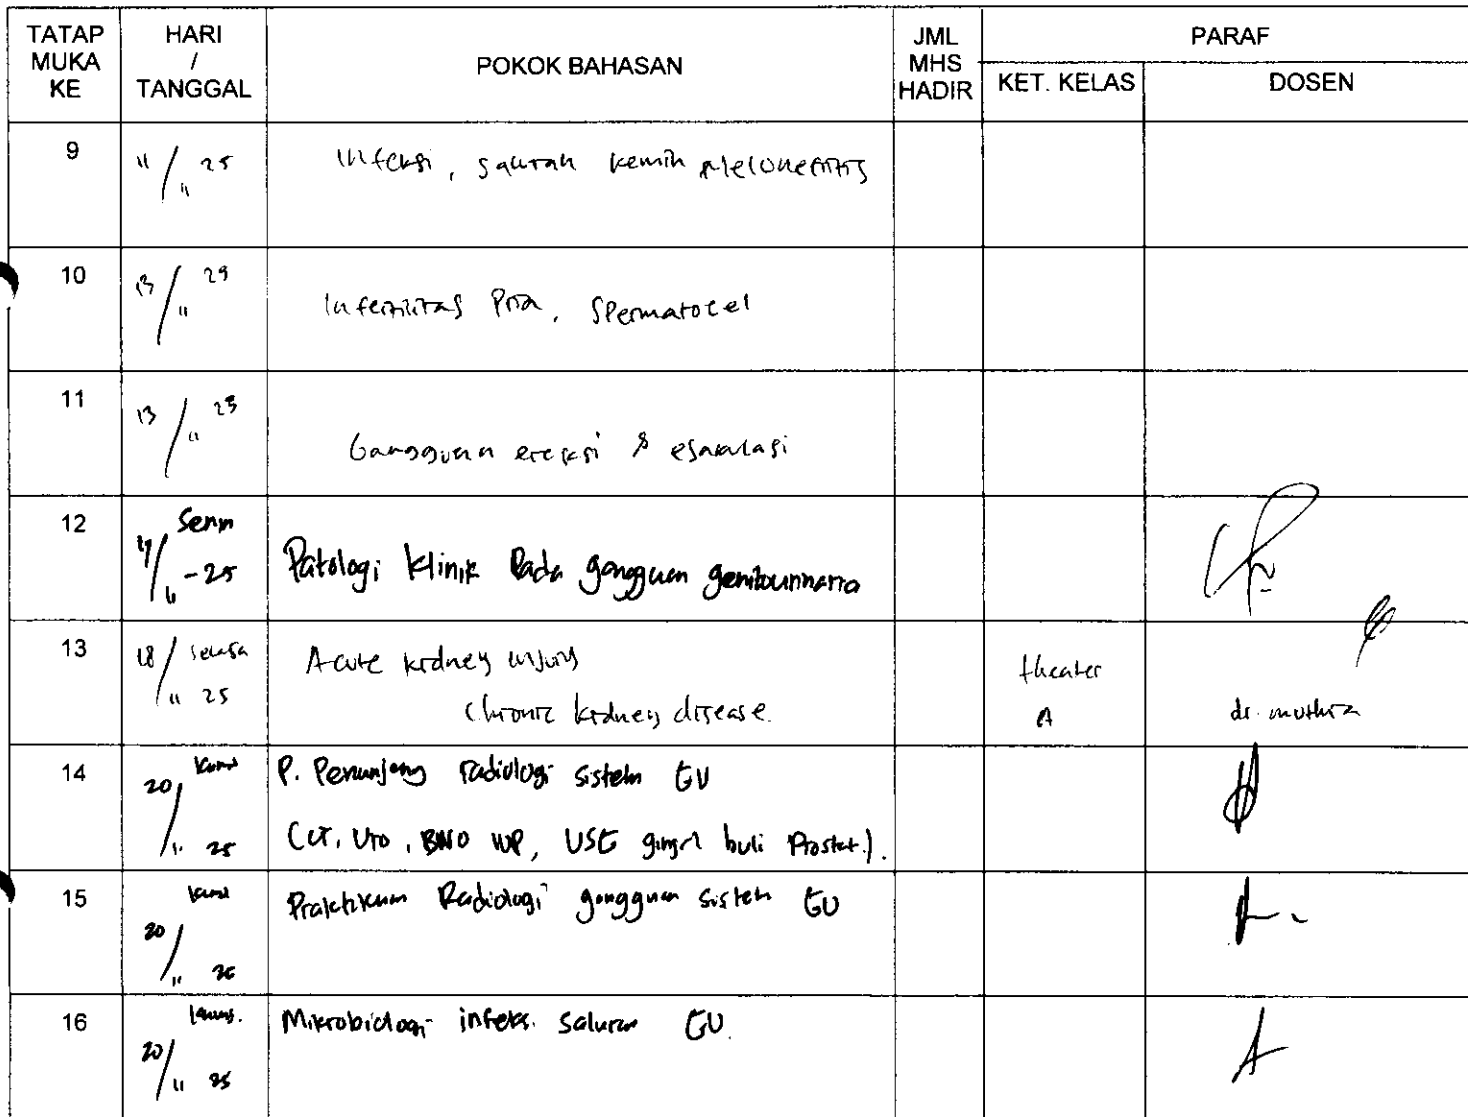 TATAP MUKA KE
HARI / TANGGAL
POKOK BAHASAN
JML MHS HADIR
PARAF
KET. KELAS
DOSEN
9
11/11 25
Infeksi, saluran kemih pielonefritis
10
13/11
Infertilitas Pria, Spermatocel
11
13/11
Gangguan ereksi & ejakulasi
12
Senin
17/11 - 25
Patologi Klinik Pada gangguan genitourinaria
13
18/11 selasa 25
Acute kidney injury
Chronic kidney disease.
theater A
dr. muthia
14
20/11 25
P. Penunjang radiologi sistem GU
BNO IVP, USG ginjal buli Prostat.).
15
20/11
Praktikum Radiologi gangguan sistem GU
16
kamis.
20/11 25
Mikrobiologi infeksi saluran GU.